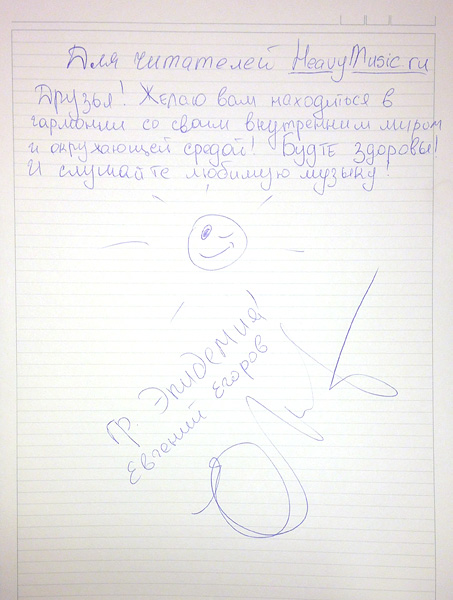 Для читателей HeavyMusic.ru
Друзья! Желаю вам находиться в
гармонии со своим внутренним миром
и окружающей средой! Будте здоровы!
И слушайте любимую музыку!
Гр. Эпидемия!
Евгений Егоров